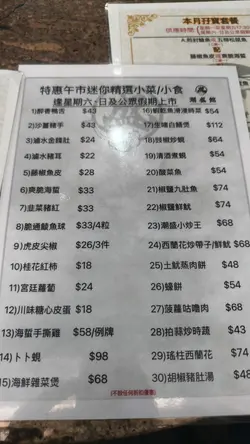 本月孖寶套餐
特惠午市迷你精選小菜/小食
逢星期六、日及公眾假期上市
1)醉香鴨舌 $43
2)沙薑豬手 $43
3)滷水金錢肚 $24
4)滷水豬耳 $22
5)藤椒魚皮 $28
6)爽脆海蜇 $33
7)韭菜豬紅 $33
8)脆通鯪魚球 $33/4粒
9)虎皮尖椒 $26/3件
10)桂花紅柿 $18
11)宮廷蘿蔔 $24
12)川味糖心皮蛋 $18
13)海蜇手撕雞 $58/例牌
14)卜卜蜆 $98
15)海鮮雜菜煲 $68
$54
17)生啫白鱔煲 $112
18)豉椒炒蜆 $64
19)清酒煮蜆 $54
20)酸菜魚 $54
21)椒鹽九肚魚 $74
22)椒鹽鮮魷 $74
23)潮盛小炒王 $68
24)西蘭花炒帶子/鮮魷 $68
25)土魷蒸肉餅 $48
26)蠔餅 $54
27)菠蘿咕嚕肉 $68
28)拍蒜炒時蔬 $43
29)瑤柱西蘭花 $74
30)胡椒豬肚湯 $48